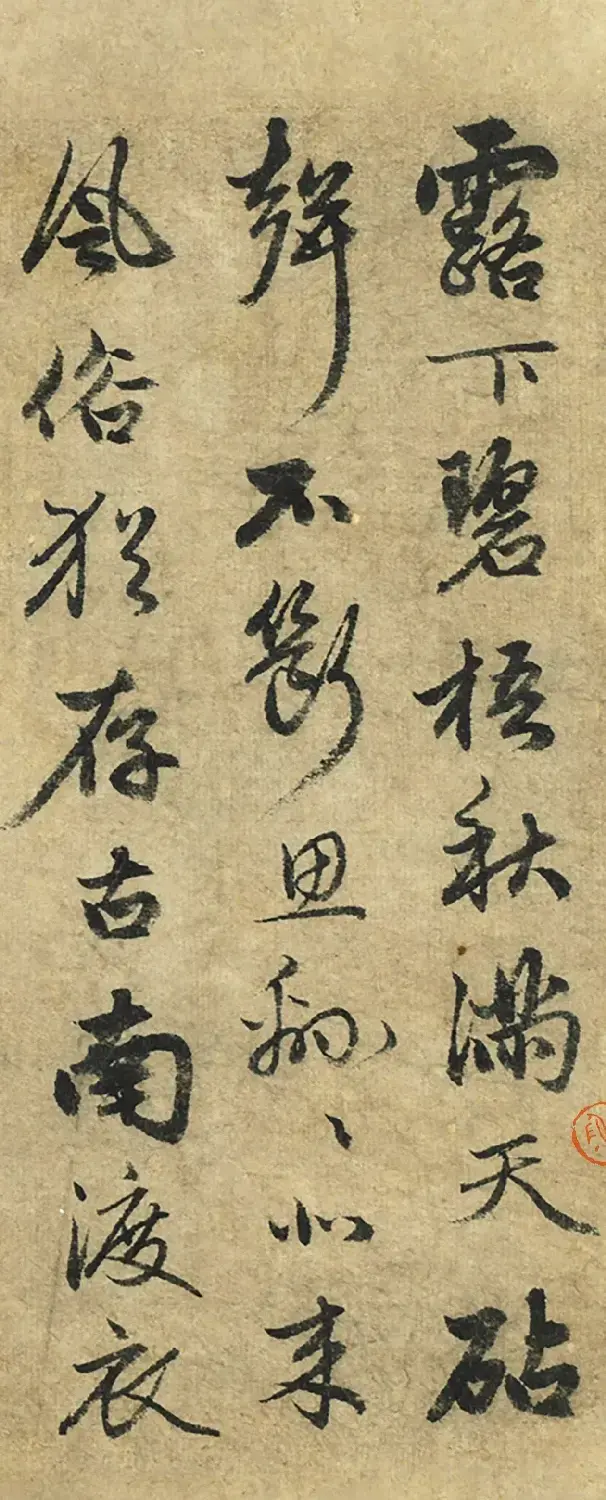 露下碧梧秋滿天砧
聲不斷思緜〻北来
風俗猶存古南渡衣